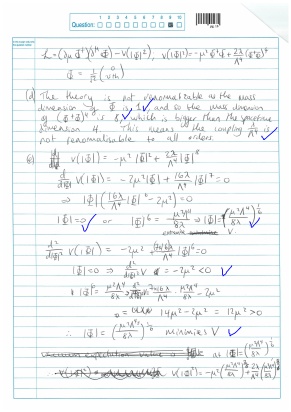 Question:
1 2 3 4 5 6 7 8 9 10
L = (∂μ Φ†)(∂^μ Φ) − V(|Φ|²), V(|Φ|²) = −μ² Φ†Φ + 2λ/Λ⁴ (Φ†Φ)⁴
Φ = 1/√2 (0 v+h)
(d) The theory is not renormalisable as the mass
dimension of Φ is 1, and so the mass dimension
of (Φ†Φ)⁴ is 8, which is bigger than the spacetime
dimension 4. This means the coupling λ/Λ⁴ is
not renormalisable to all orders.
(e) V(|Φ|) = −μ² |Φ|² + 2λ/Λ⁴ |Φ|⁸
d/d|Φ| V(|Φ|) = −2μ²|Φ| + 16λ/Λ⁴ |Φ|⁷ = 0
⇒ |Φ| (16λ/Λ⁴ |Φ|⁶ − 2μ²) = 0
|Φ| = 0 or |Φ|⁶ = μ²Λ⁴/8λ ⇒ |Φ| = (μ²Λ⁴/8λ)^1/6
d²/d|Φ|² V(|Φ|) = −2μ² + 7·16λ/Λ⁴ |Φ|⁶ = 0
|Φ| = 0 ⇒ d²/d|Φ|² V = −2μ² < 0
|Φ|⁶ = μ²Λ⁴/8λ ⇒ 7·16λ/Λ⁴ · μ²Λ⁴/8λ − 2μ²
= 14μ² − 2μ² = 12μ² > 0
∴ |Φ| = (μ²Λ⁴/8λ)^1/6 minimises V
at |Φ| = (μ²Λ⁴/8λ)^1/6
V(|Φ|²) = −μ² (μ²Λ⁴/8λ)^1/3 + 2λ/Λ⁴ (μ²Λ⁴/8λ)^4/3